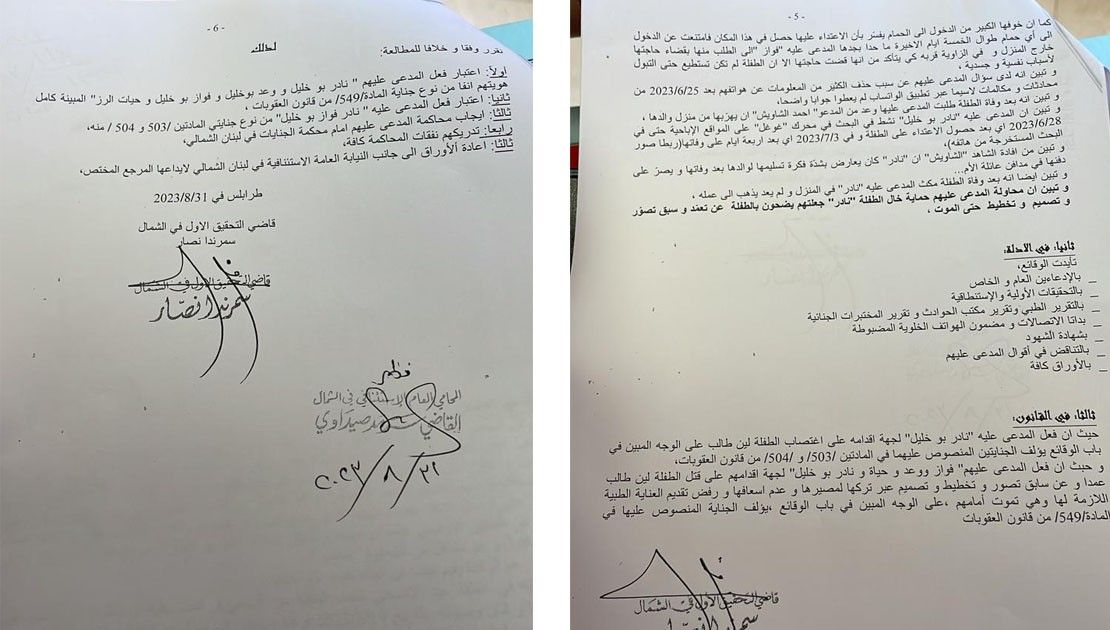 - 5 -
كما ان خوفها الكبير من الدخول الى الحمام يفسّر بأن الاعتداء عليها حصل في هذا المكان فامتنعت عن الدخول
الى أي حمام طوال الخمسة ايام الاخيرة ما حدا بجدها المدعى عليه "فواز" الى الطلب منها بقضاء حاجتها
خارج المنزل و في الزاوية قربه كي يتأكد من انها قضت حاجتها الا ان الطفلة لم تكن تستطيع حتى التبول
لأسباب نفسية و جسدية ،
و تبين انه لدى سؤال المدعى عليهم عن سبب حذف الكثير من المعلومات عن هواتفهم بعد 2023/6/25 من
محادثات و مكالمات لاسيما عبر تطبيق الواتساب لم يعطوا جوابا واضحا،
و تبين انه بعد وفاة الطفلة طلبت المدعى عليها وعد من المدعو "احمد الشاويش" ان يهربها من منزل والدها ،
و تبين ان المدعى عليه "نادر بو خليل" نشط في البحث في محرك "غوغل" على المواقع الإباحية حتى في
2023/6/28 اي بعد حصول الاعتداء على الطفلة و في 2023/7/3 اي بعد اربعة ايام على وفاتها(ربطا صور
البحث المستخرجة من هاتفه)،
و تبين من افادة الشاهد "الشاويش" ان "نادر" كان يعارض بشدّة فكرة تسليمها لوالدها بعد وفاتها و يصرّ على
دفنها في مدافن عائلة الأم...
و تبين ايضا انه بعد وفاة الطفلة مكث المدعى عليه "نادر" في المنزل و لم يعد يذهب الى عمله ،
و تبين ان محاولة المدعى عليهم حماية خال الطفلة "نادر" جعلتهم يضحون بالطفلة عن تعمّد و سبق تصوّر
و تصميم و تخطيط حتى الموت ،
ثانيا: في الادلة:
تأيدت الوقائع،
_ بالإدعاءين العام و الخاص
_ بالتحقيقات الأولية والإستنطاقية
_ بالتقرير الطبي وتقرير مكتب الحوادث و تقرير المختبرات الجنائية
_ بداتا الاتصالات و مضمون الهواتف الخلوية المضبوطة
_ بشهادة الشهود
_ بالتناقض في أقوال المدعى عليهم
_ بالأوراق كافة
ثالثا: في القانون:
حيث ان فعل المدعى عليه "نادر بو خليل" لجهة اقدامه على اغتصاب الطفلة لين طالب على الوجه المبين في
باب الوقائع يؤلف الجنايتين المنصوص عليهما في المادتين /503/ و /504/ من قانون العقوبات،
و حيث ان فعل المدعى عليهم" فواز ووعد و حياة و نادر بو خليل" لجهة اقدامهم على قتل الطفلة لين طالب
عمدا و عن سابق تصور و تخطيط و تصميم عبر تركها لمصيرها و عدم اسعافها و رفض تقديم العناية الطبية
اللازمة لها وهي تموت أمامهم ،على الوجه المبين في باب الوقائع ،يؤلف الجناية المنصوص عليها في
المادة/549/ من قانون العقوبات
قاضي التحقيق الاول في الشمال
- 6 -
لذلك
نقرر وفقا و خلافا للمطالعة:
اولاً: اعتبار فعل المدعى عليهم " نادر بو خليل و وعد بوخليل و فواز بو خليل و حيات الرز" المبينة كامل
هويتهم انفا من نوع جناية المادة/549/ من قانون العقوبات ،
ثانيا: اعتبار فعل المدعى عليه " نادر فواز بو خليل" من نوع جنايتي المادتين /503 و 504 / منه،
ثالثا: ايجاب محاكمة المدعى عليهم امام محكمة الجنايات في لبنان الشمالي،
رابعا: تدريكهم نفقات المحاكمة كافة،
ثالثا: اعادة الأوراق الى جانب النيابة العامة الاستئنافية في لبنان الشمالي لايداعها المرجع المختص،
طرابلس في 2023/8/31
قاضي التحقيق الاول في الشمال
سمرندا نصار
قاضي التحقيق الاول في الشمال
سمرندا نصار
المحامي العام الإستئنافي في الشمال
القاضي صيداوي
٢٠٢٣/٨/٣١